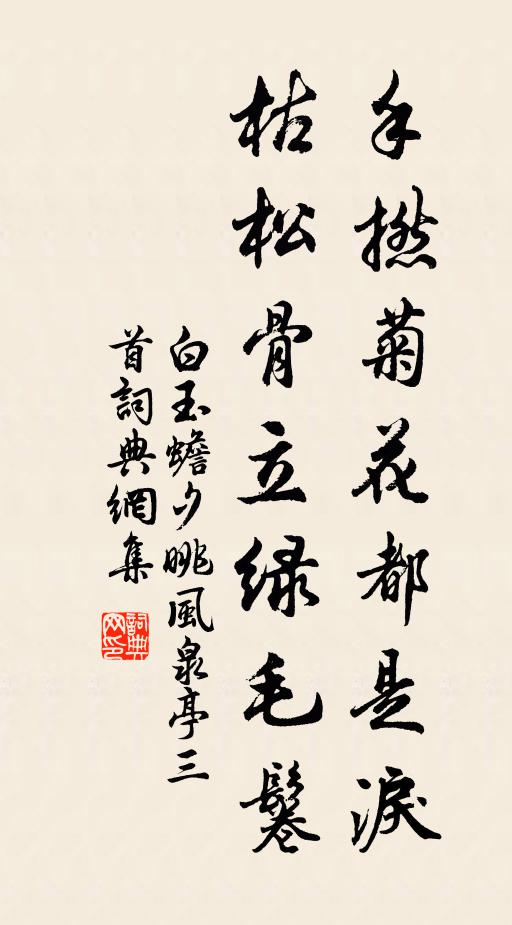 手撚菊花都是淚
枯松骨立綠毛鬈
白玉蟾夕眺風泉亭三
首詞典網集
詞典
网印